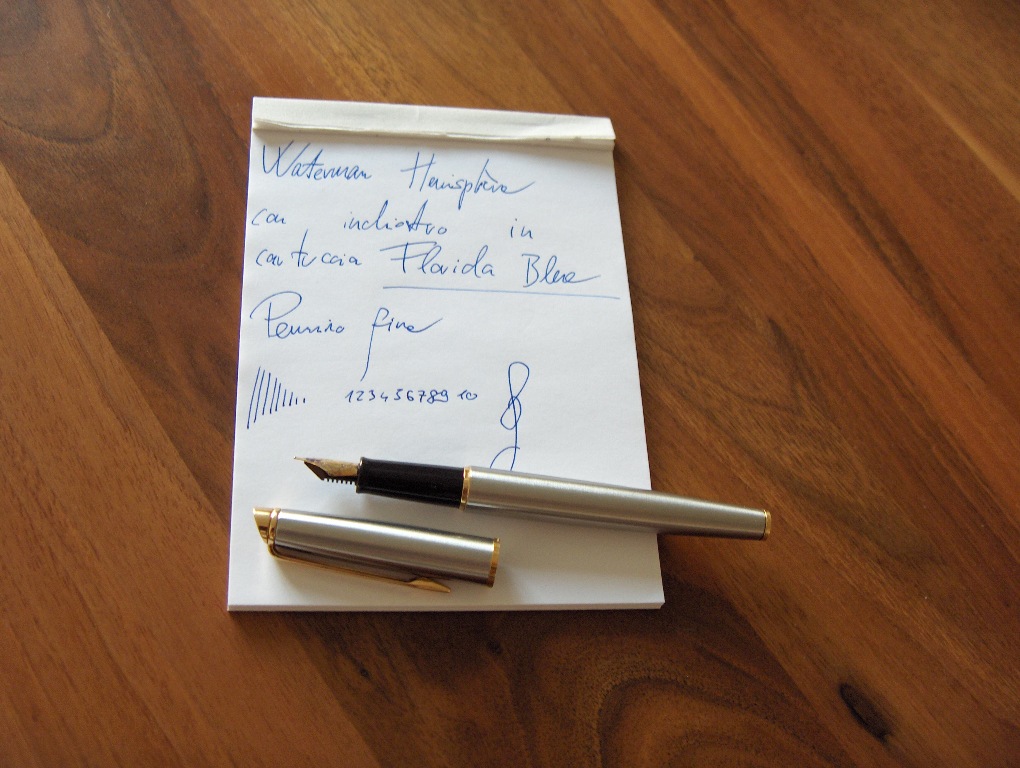 Waterman Hemisphère
con inchiostro in
cartuccia Florida Bleu
Pennino fine
12345678910